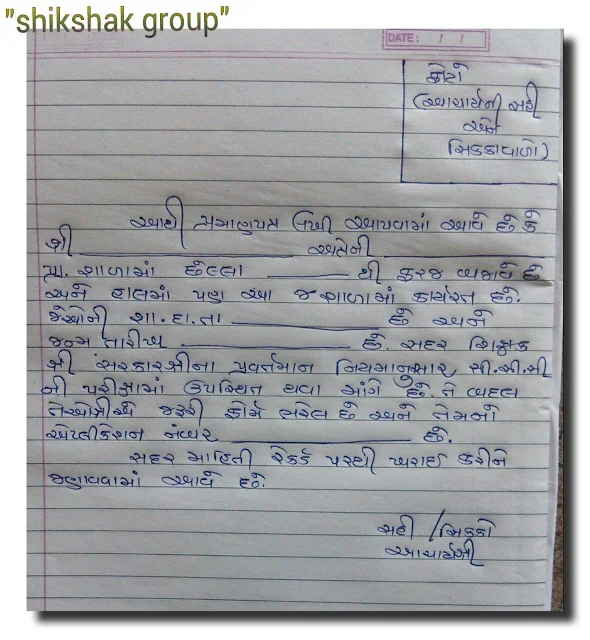 "shikshak group"
DATE: / /
ફોટો
(આચાર્યની સહી
અને
સિક્કાવાળો)
આથી પ્રમાણપત્ર લખી આપવામાં આવે છે કે
શ્રી ____________ અત્રેની ____________
પ્રા. શાળામાં છેલ્લા ______ થી ફરજ બજાવે છે
અને હાલમાં પણ આ જ શાળામાં કાર્યરત છે.
જેઓની શા.દા.તા ____________ છે અને
જન્મ તારીખ ____________ છે. સદર શિક્ષક
શ્રી સરકારશ્રીના પ્રવર્તમાન નિયમાનુસાર સી.સી.સી
ની પરીક્ષામાં ઉપસ્થિત થવા માંગે છે. તે બદલ
તેઓશ્રીએ જરૂરી ફોર્મ ભરેલ છે અને તેમનો
એપ્લીકેશન નંબર ____________ છે.
સદર માહિતી રેકર્ડ પરથી ખરાઈ કરીને
જણાવવામાં આવે છે.
સહી / સિક્કો
આચાર્યશ્રી